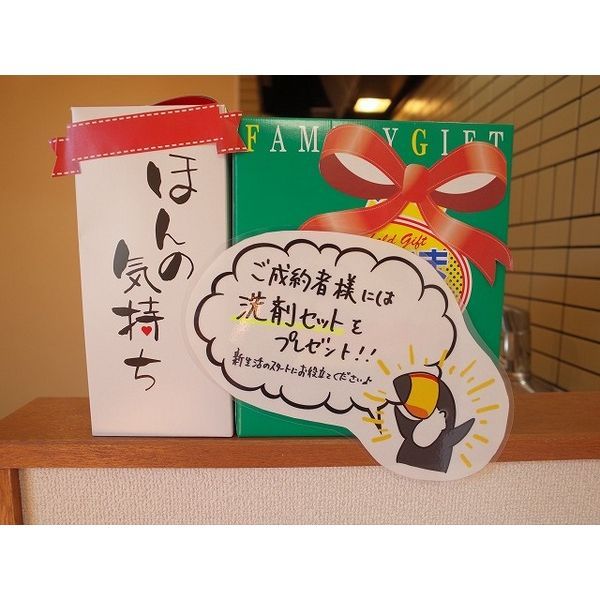 ほんの
気持ち
FAMILY GIFT
Gold Gift
ご成約者様には
洗剤セットを
プレゼント!!
新生活のスタートにお役立てくださいよ